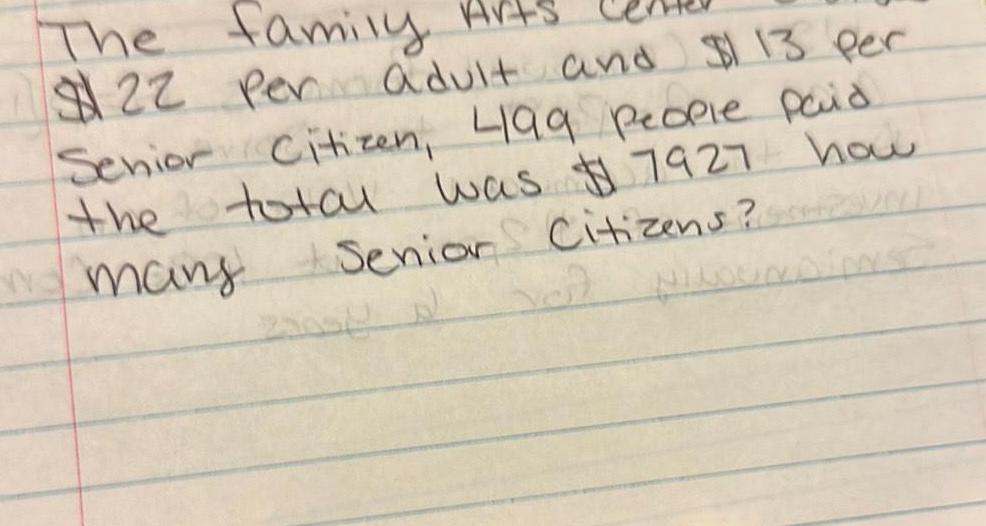 The family Arts Center
$22 per adult and $13 per
Senior Citizen, 499 people paid
the total was $7927 how
many Senior Citizens?